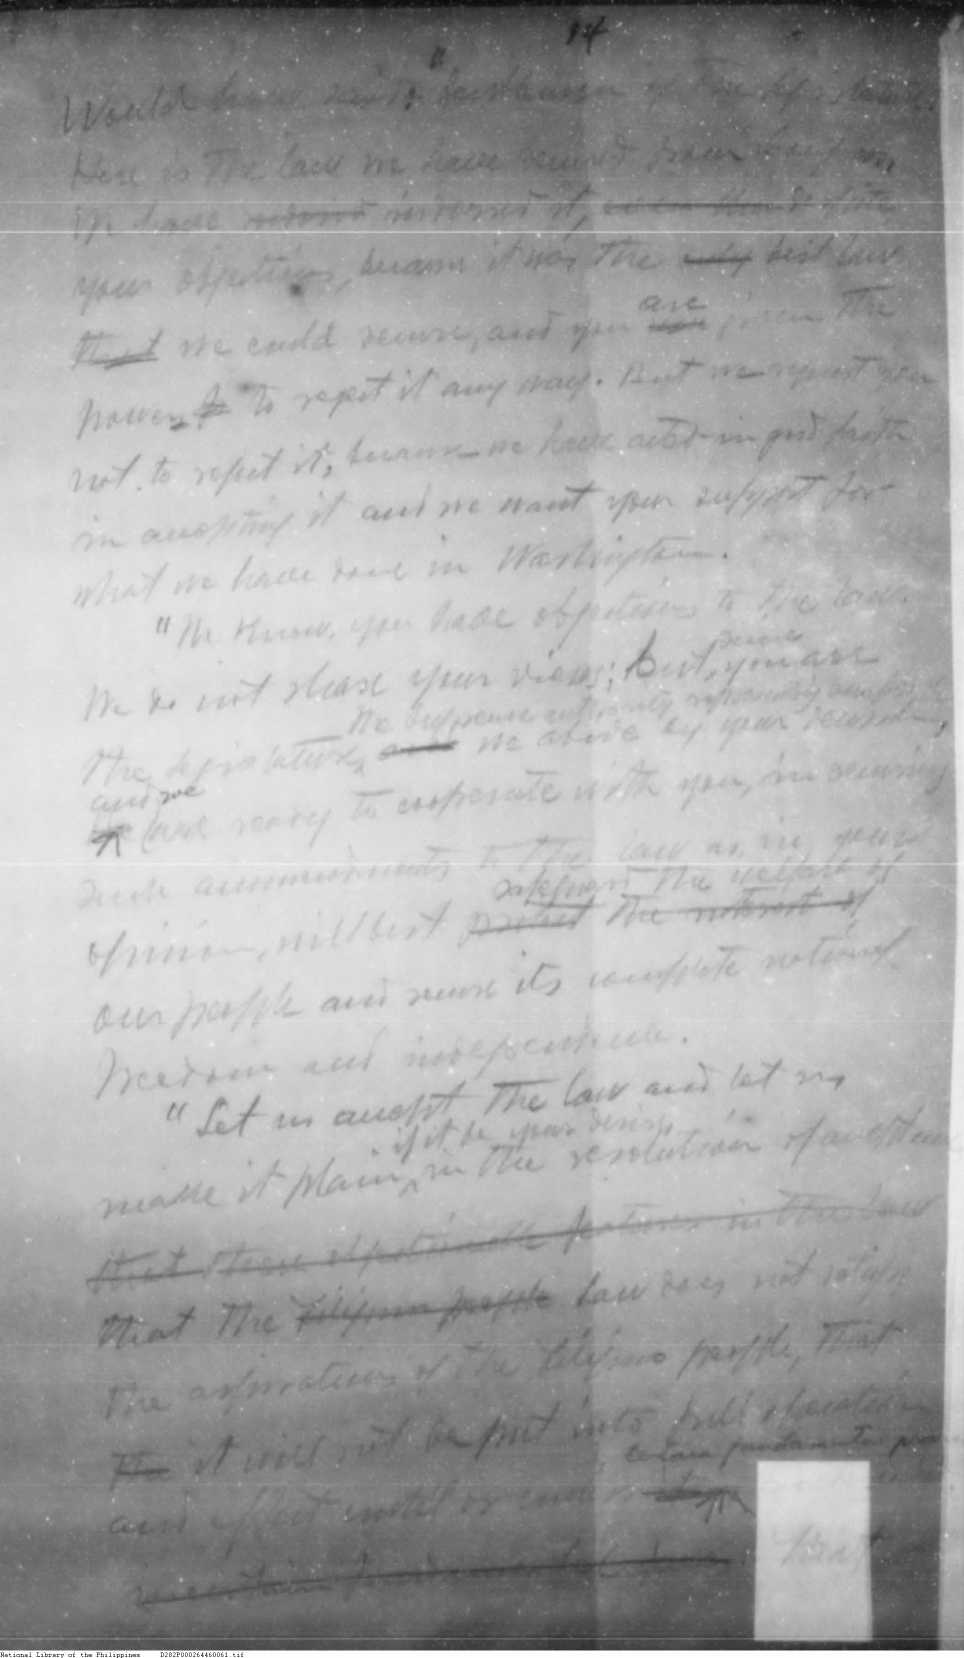 14
"
Would have said to
Here is the law we have secured from Congress,
We have indorsed it, despite
your objections, because it was the only best law
that we could secure, and you are given the
power to to reject it any way. But we request you
not to reject it, because we have acted in good faith
in accepting it and we want your support for
what we have done in Washington.
"We know you have objections to the law.
We do not share your views; but, since you are
the supreme authority
the legislature, and we abide by your decision,
and we
are ready to cooperate with you, in securing
such ammendments to the law as, in your
safeguard the welfare of
opinion, will best protect the interest of
our people and secure its complete national
freedom and independence.
"Let us accept the law and let us
if it be your desire
make it plain, in the resolution of acceptance
that these objectionable features in the law
that the Filipino people law does not satisfy
the aspirations of the Filipino people, that
the it will not be put into full operation
certain fundamental
and effect until or unless
in certain fundamental
National Library of the Philippines D282P000264460061.tif